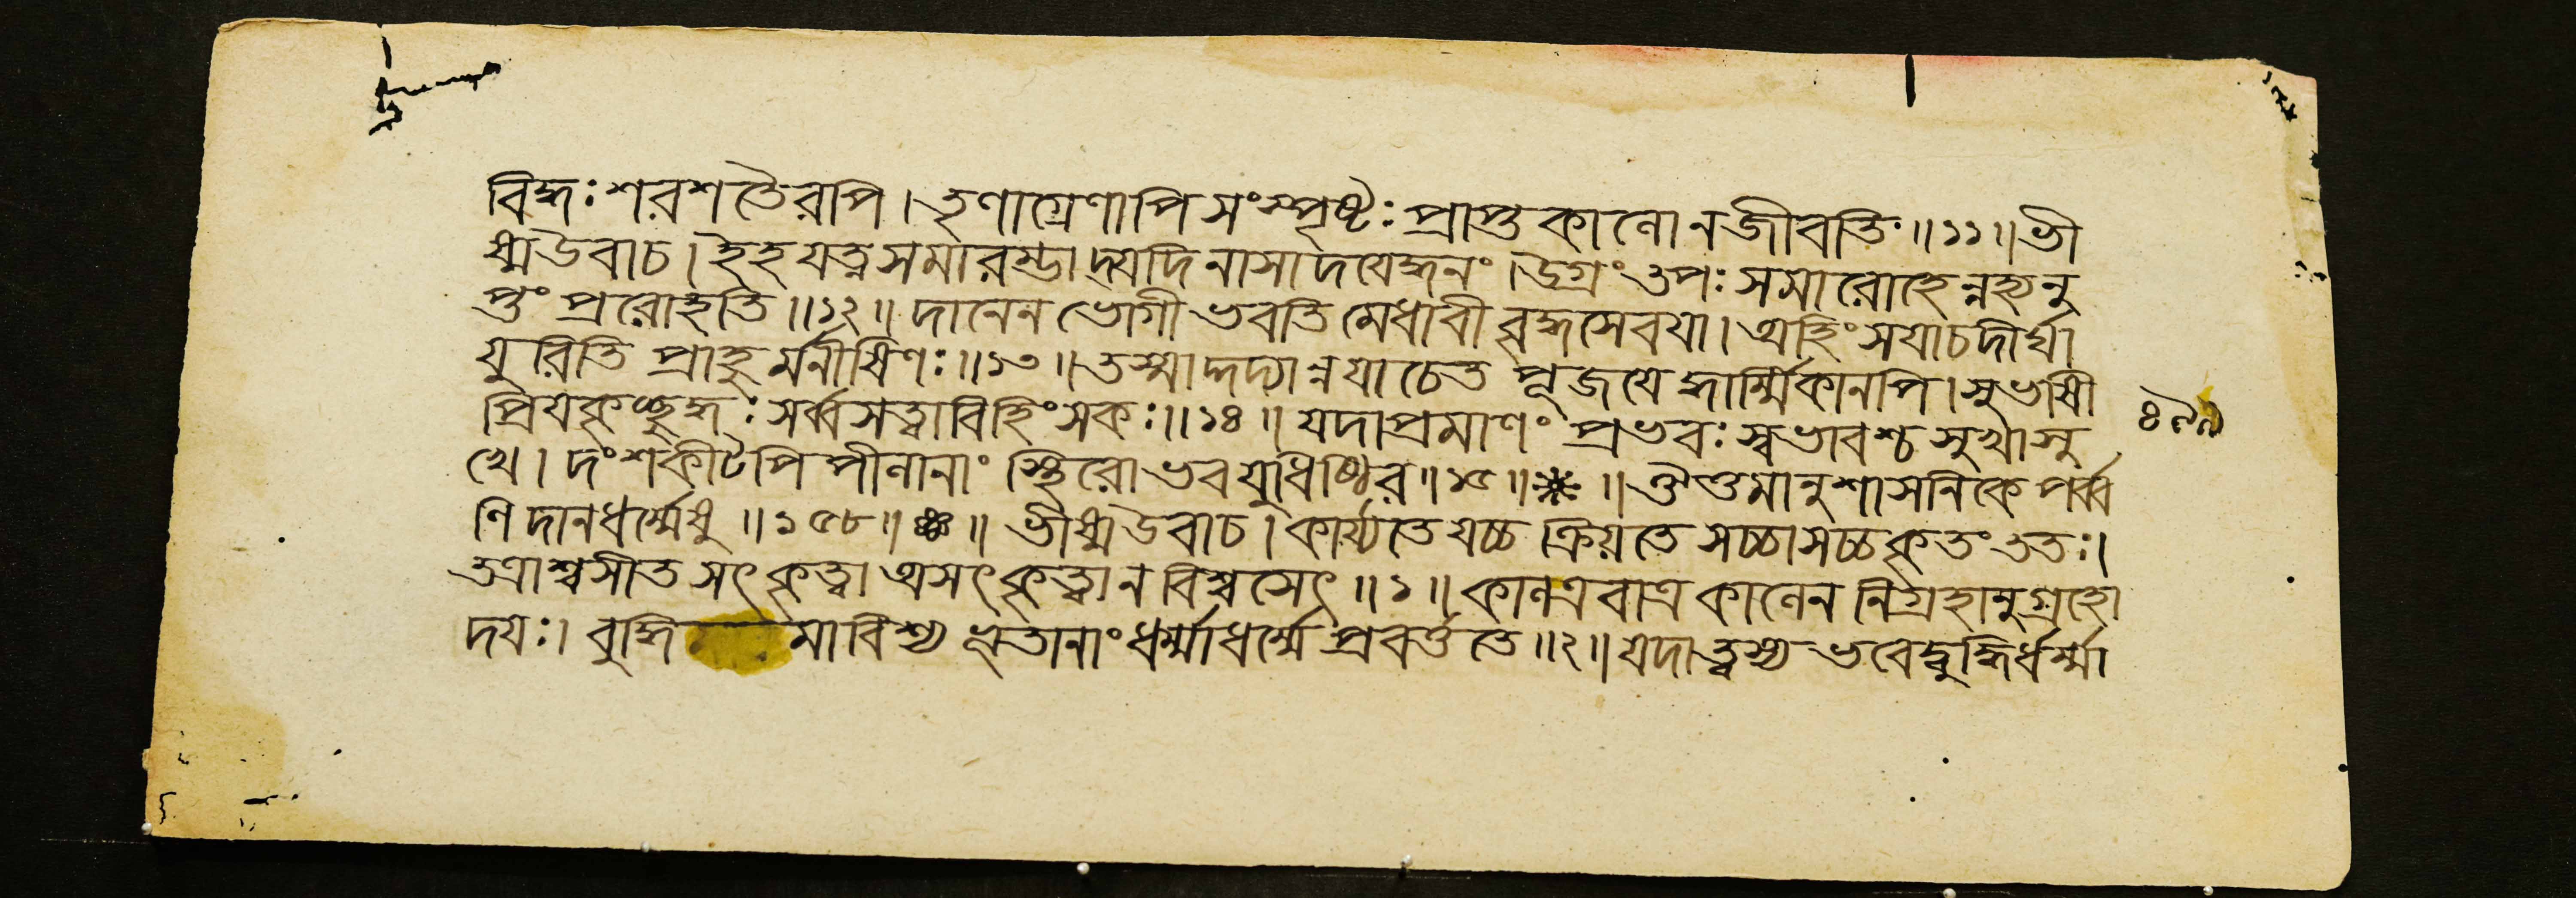 বিদ্ধঃ শরশতৈরপি । তৃণাগ্রেণাপি সংস্পৃষ্টঃ প্রাপ্তকালো ন জীবতি ॥ ১১ ॥ ভী
ষ্ম উবাচ । ইহ যত্নসমারম্ভা দ্যদি নাসাদয়েদ্ধনং । উগ্রং তপঃ সমারোহেন্নহ্যনু
প্তং প্ররোহতি ॥ ১২ ॥ দানেন ভোগী ভবতি মেধাবী বৃদ্ধসেবয়া । অহিংসয়া চ দীর্ঘা
য়ুরিতি প্রাহুর্মনীষিণঃ ॥ ১৩ ॥ তস্মাদ্দদ্যান্ন যাচেত পূজয়েদ্ধার্ম্মিকানপি । সুভাষী
প্রিয়কৃচ্ছুদ্ধঃ সর্ব্বসত্ত্বাবিহিংসকঃ ॥ ১৪ ॥ যদা প্রমাণং প্রভবঃ স্বভাবশ্চ সুখাসু
খে । দংশকীটপিপীলানাং স্থিরো ভব যুধিষ্ঠির ॥ ১৫ ॥ ॥ ঔশুমানুশাসনিকে পর্ব্ব
ণি দানধর্ম্মেষু ॥ ১৫৮ ॥ ॥ ভীষ্ম উবাচ । কার্য্যতে যচ্চ ক্রিয়তে সচ্চাসচ্চ কৃতং ততঃ ।
তত্রাশ্বসীত সৎকৃত্বা অসৎকৃত্বা ন বিশ্বসেৎ ॥ ১ ॥ কাল এবাত্র কালেন নিগ্রহানুগ্রহো
দয়ঃ । বুদ্ধি মাবিশ্য ভূতানাং ধর্ম্মাধর্ম্মে প্রবর্ত্ততে ॥ ২ ॥ যদা ত্বস্য ভবেদ্বুদ্ধির্ধর্ম্মা